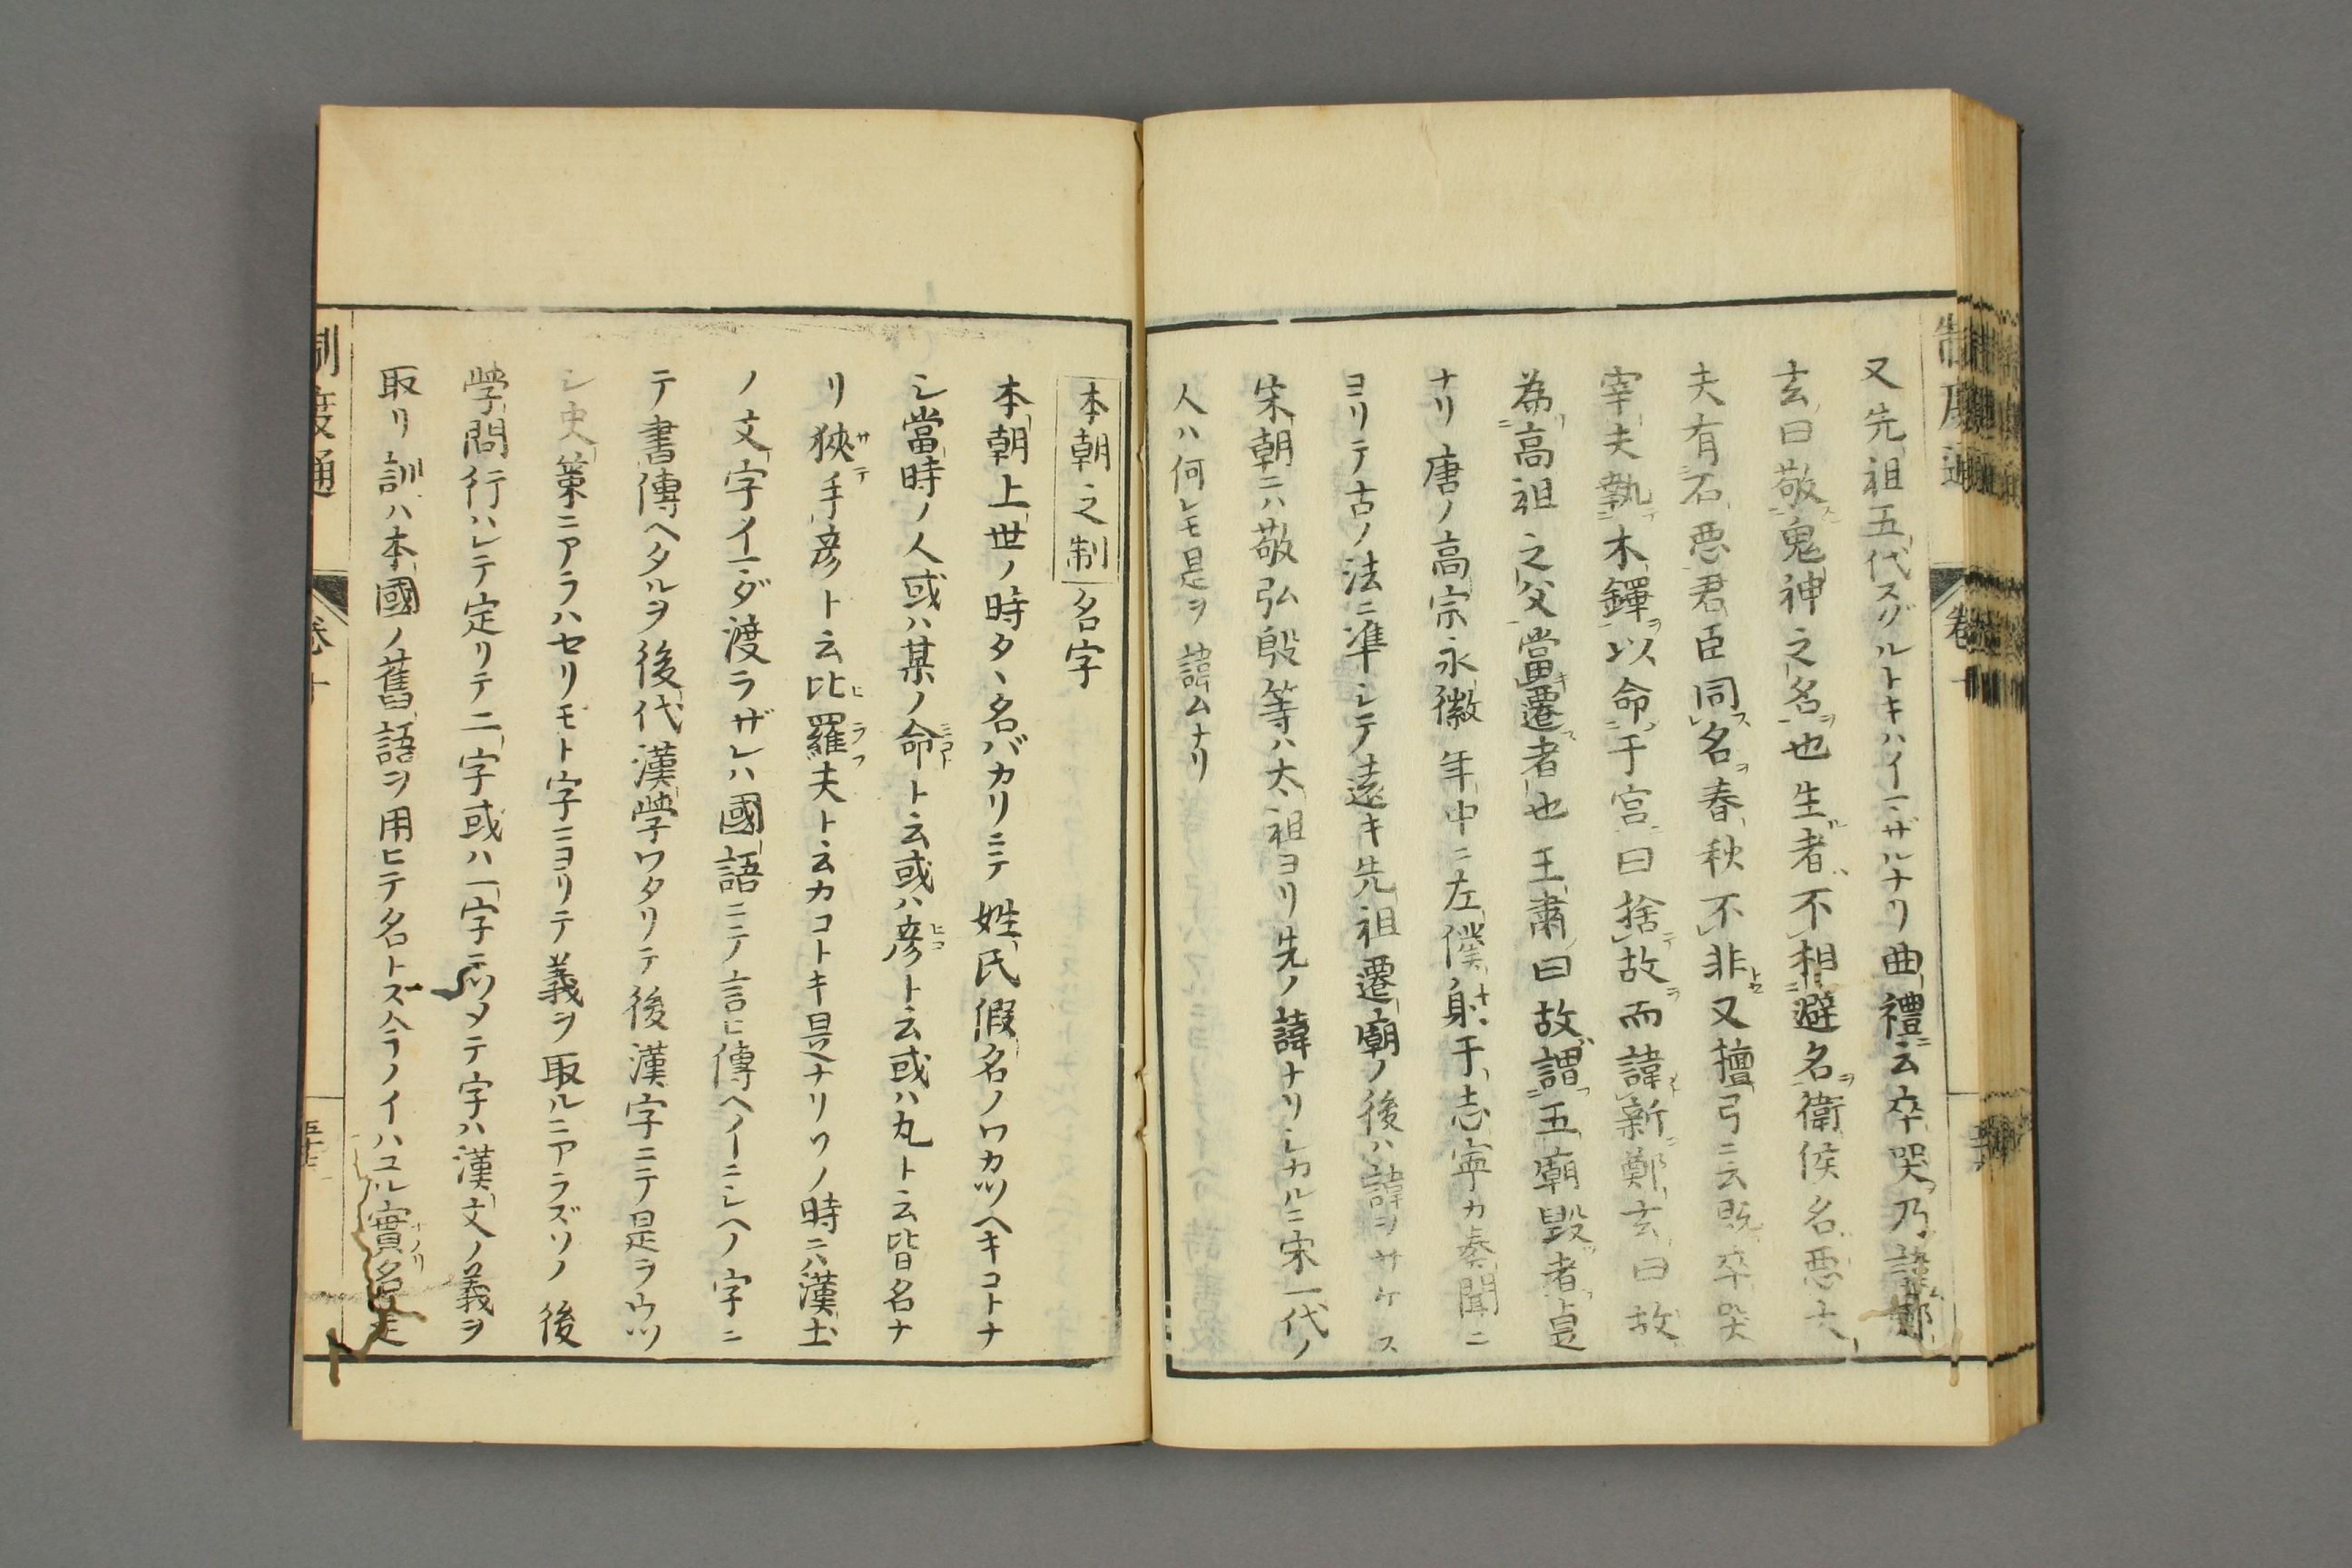 制度通 卷十
又先祖五代スグルトキハイマザルナリ曲禮ニ云卒哭乃諱鄭
玄曰敬鬼神之名也生者不相避名衛侯名惡大
夫有石惡君臣同名春秋不非又檀弓ニ云既卒哭
宰夫執木鐸以命于宮曰捨故而諱新鄭玄曰故
為高祖之父當遷者也王肅曰故謂五廟毀者是
ナリ唐ノ高宗永徽年中ニ左僕射于志寧カ奏聞ニ
ヨリテ古ノ法ニ準シテ遠キ先祖遷廟ノ後ハ諱ヲサケス
宋朝ニハ敬弘殷等ハ太祖ヨリ先ノ諱ナリシカルニ宋一代ノ
人ハ何レモ是ヲ諱ムナリ
本朝之制 名字
本朝上世ノ時タヽ名バカリニテ姓氏假名ノワカツヘキコトナ
シ當時ノ人或ハ某ノ命ト云或ハ彦ト云或ハ丸ト云皆名ナ
リ狹手彦ト云比羅夫ト云カコトキ是ナリソノ時ニハ漢土
ノ文字イマダ渡ラザレハ國語ニテノ言ヒ傳ヘイニシヘノ字ニ
テ書傳ヘタルヲ後代漢學ワタリテ後漢字ニテ是ヲウツ
シ史策ニアラハセリモト字ニヨリテ義ヲ取ルニアラズソノ後
學問行ハレテ定リテ二字或ハ一字ニツメテ字ハ漢文ノ義ヲ
取リ訓ハ本國ノ舊語ヲ用ヒテ名トス今ノイハユル實名是
制度通 卷十